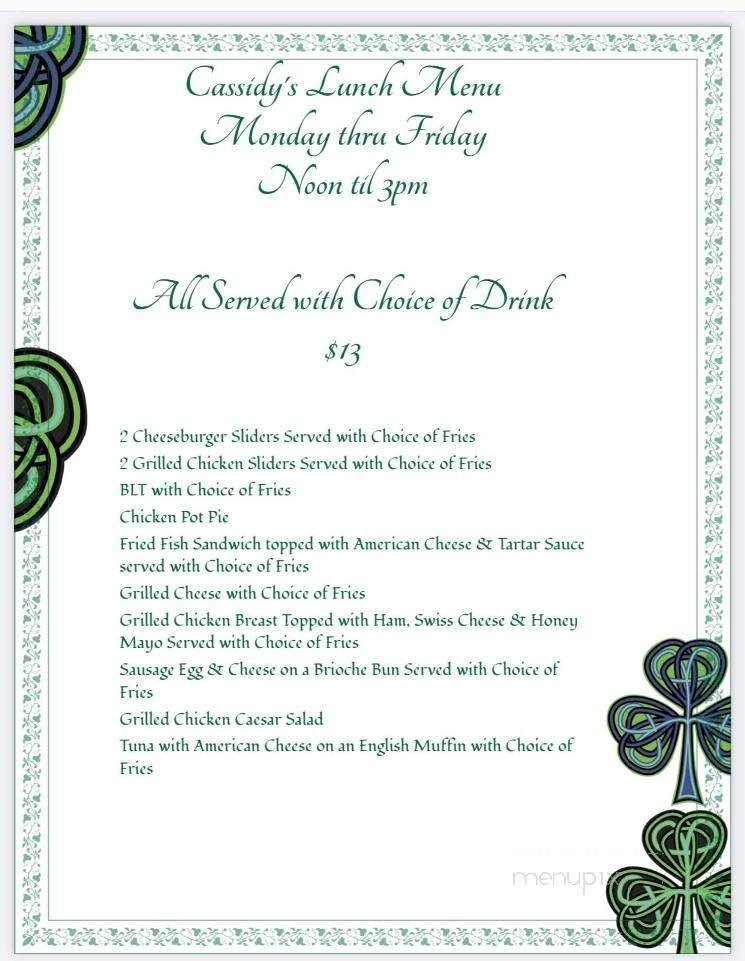 Cassidy's Lunch Menu
Monday thru Friday
Noon til 3pm
All Served with Choice of Drink
$13
2 Cheeseburger Sliders Served with Choice of Fries
2 Grilled Chicken Sliders Served with Choice of Fries
BLT with Choice of Fries
Chicken Pot Pie
Fried Fish Sandwich topped with American Cheese & Tartar Sauce
served with Choice of Fries
Grilled Cheese with Choice of Fries
Grilled Chicken Breast Topped with Ham, Swiss Cheese & Honey
Mayo Served with Choice of Fries
Sausage Egg & Cheese on a Brioche Bun Served with Choice of
Fries
Grilled Chicken Caesar Salad
Tuna with American Cheese on an English Muffin with Choice of
Fries
menupix